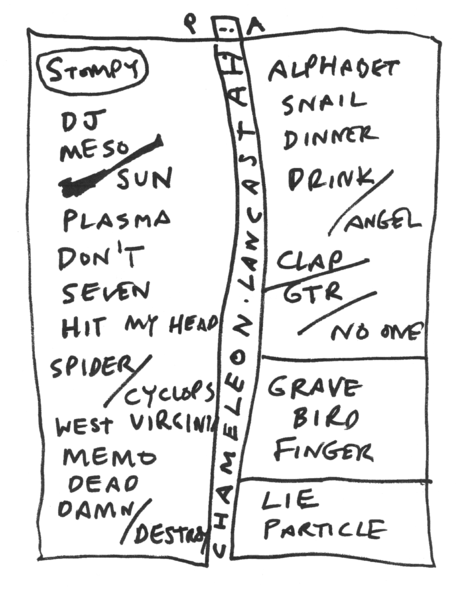 P A
STOMPY
DJ
MESO
SUN
PLASMA
DON'T
SEVEN
HIT MY HEAD
SPIDER/
CYCLOPS
WEST VIRGINIA
MEMO
DEAD
DAMN/
DESTROY
CHAMELEON · LANCASTAH
ALPHABET
SNAIL
DINNER
DRINK/
ANGEL
CLAP
GTR
NO ONE
GRAVE
BIRD
FINGER
LIE
PARTICLE